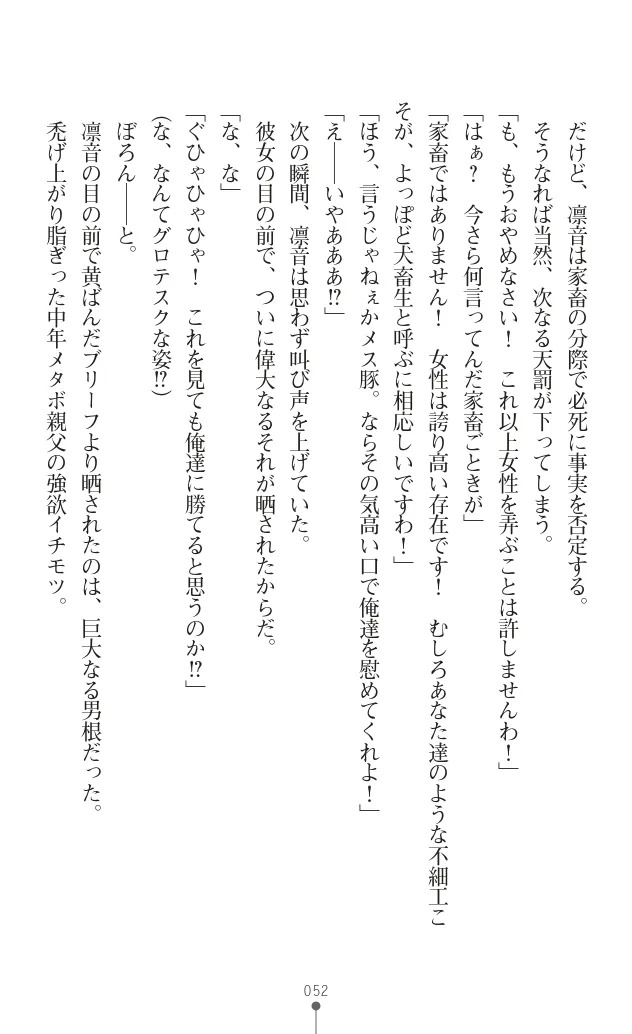 だけど、凛音は家畜の分際で必死に事実を否定する。
そうなれば当然、次なる天罰が下ってしまう。
「も、もうおやめなさい！　これ以上女性を弄ぶことは許しませんわ！」
「はぁ？　今さら何言ってんだ家畜ごときが」
「家畜ではありません！　女性は誇り高い存在です！　むしろあなた達のような不細工こ
そが、よっぽど犬畜生と呼ぶに相応しいですわ！」
「ほう、言うじゃねぇかメス豚。ならその気高い口で俺達を慰めてくれよ！」
「え――いやあああ⁉」
次の瞬間、凛音は思わず叫び声を上げていた。
彼女の目の前で、ついに偉大なるそれが晒されたからだ。
「な、な」
「ぐひゃひゃひゃ！　これを見ても俺達に勝てると思うのか⁉」
（な、なんてグロテスクな姿⁉）
ぼろん――と。
凛音の目の前で黄ばんだブリーフより晒されたのは、巨大なる男根だった。
禿げ上がり脂ぎった中年メタボ親父の強欲イチモツ。
052